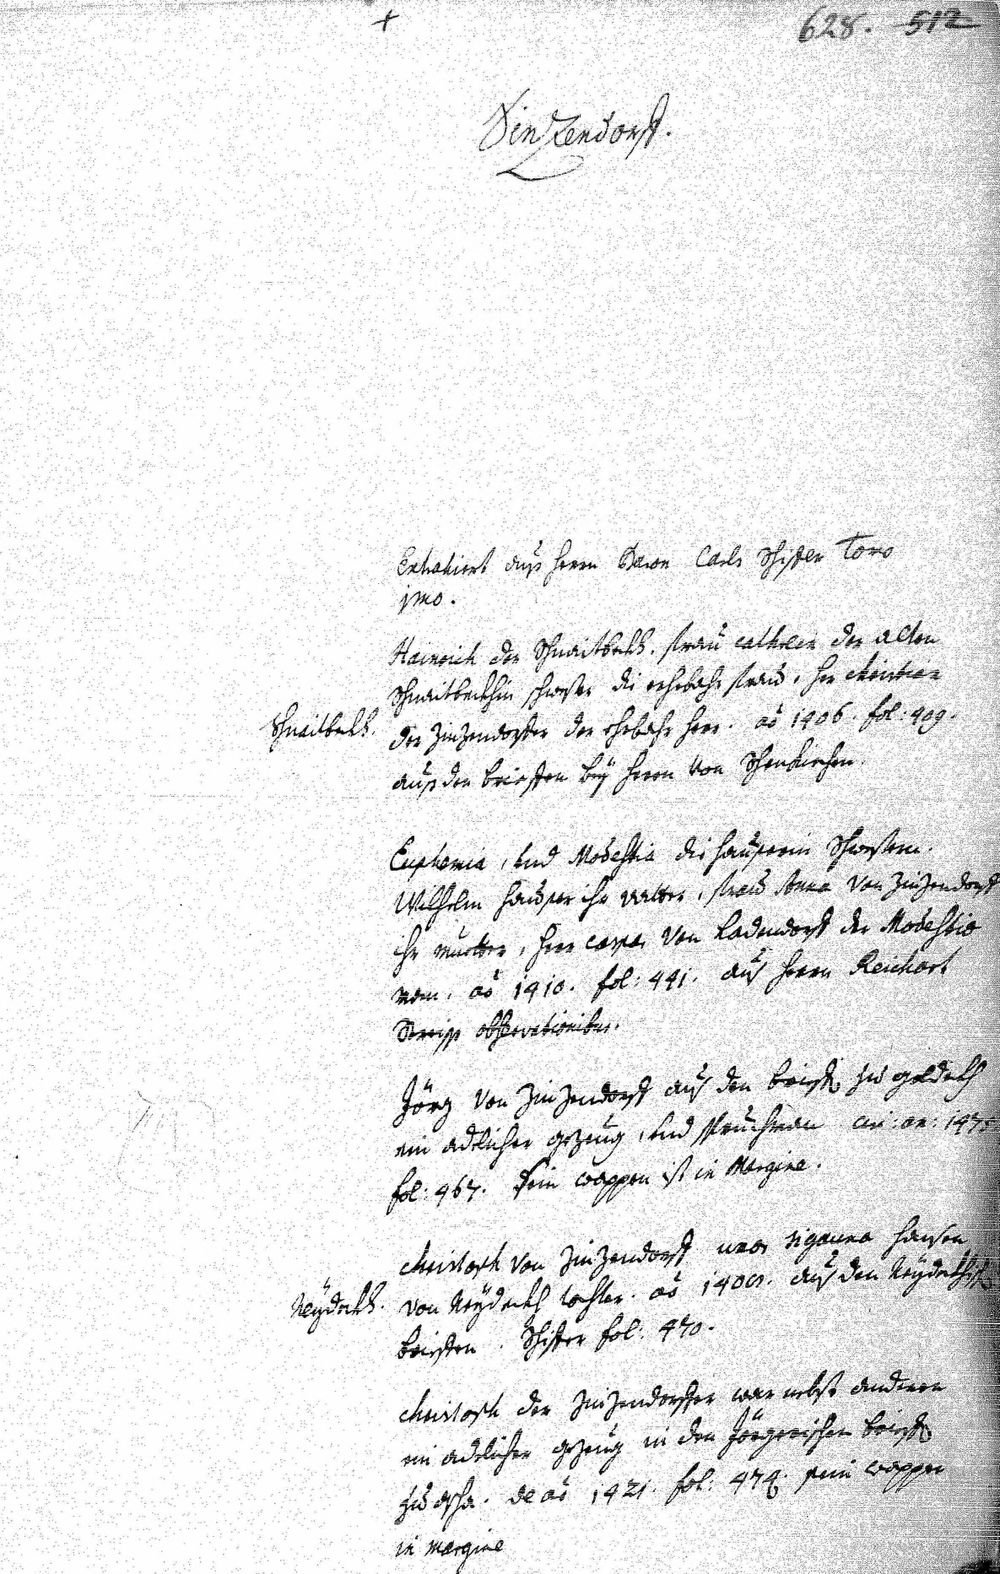 +
628. 512
Zinzendorff.
Extrahiert auß herrn Baron Carls Schifer Tomo
jmo.
Hainrich der Schnaitbekh. frau Cathrein der alten
Schnaitbeckhin schwester die erbahr frau, her Christian
Schnaitbekh.
der Zinzendorffer der erbahr herr. aō 1406. fol: 409.
auß den brieffen bey herrn von Schenkirchen.
Euphemia, und Modestia die hauserin Schwestern.
Wilhelm hauser ihr vatter, frau Anna von Zinzendorff
ihr mutter, herr Caspar von Ladendorff der Modestia
man. aō 1410. fol: 441. auß herrn Reichart
Streiss observationibus.
Jörg von Zinzendorff auß den brieff zu
ein adlicher gezeug, und spruchman an: 1475
fol: 467. Sein wappen ist in Margine.
Christoph von Zinzendorff uxor hansen
Neydekh.
von Neydekh tochter. aō auß den Neydekhisch
brieffen. Schiffer fol: 470.
Christoph der Zinzendorffer war nebst anderen
ein adlicher gezeug in den Jörgerischen brieff
zu de aō 1421. fol: 474. sein wappen
in margine